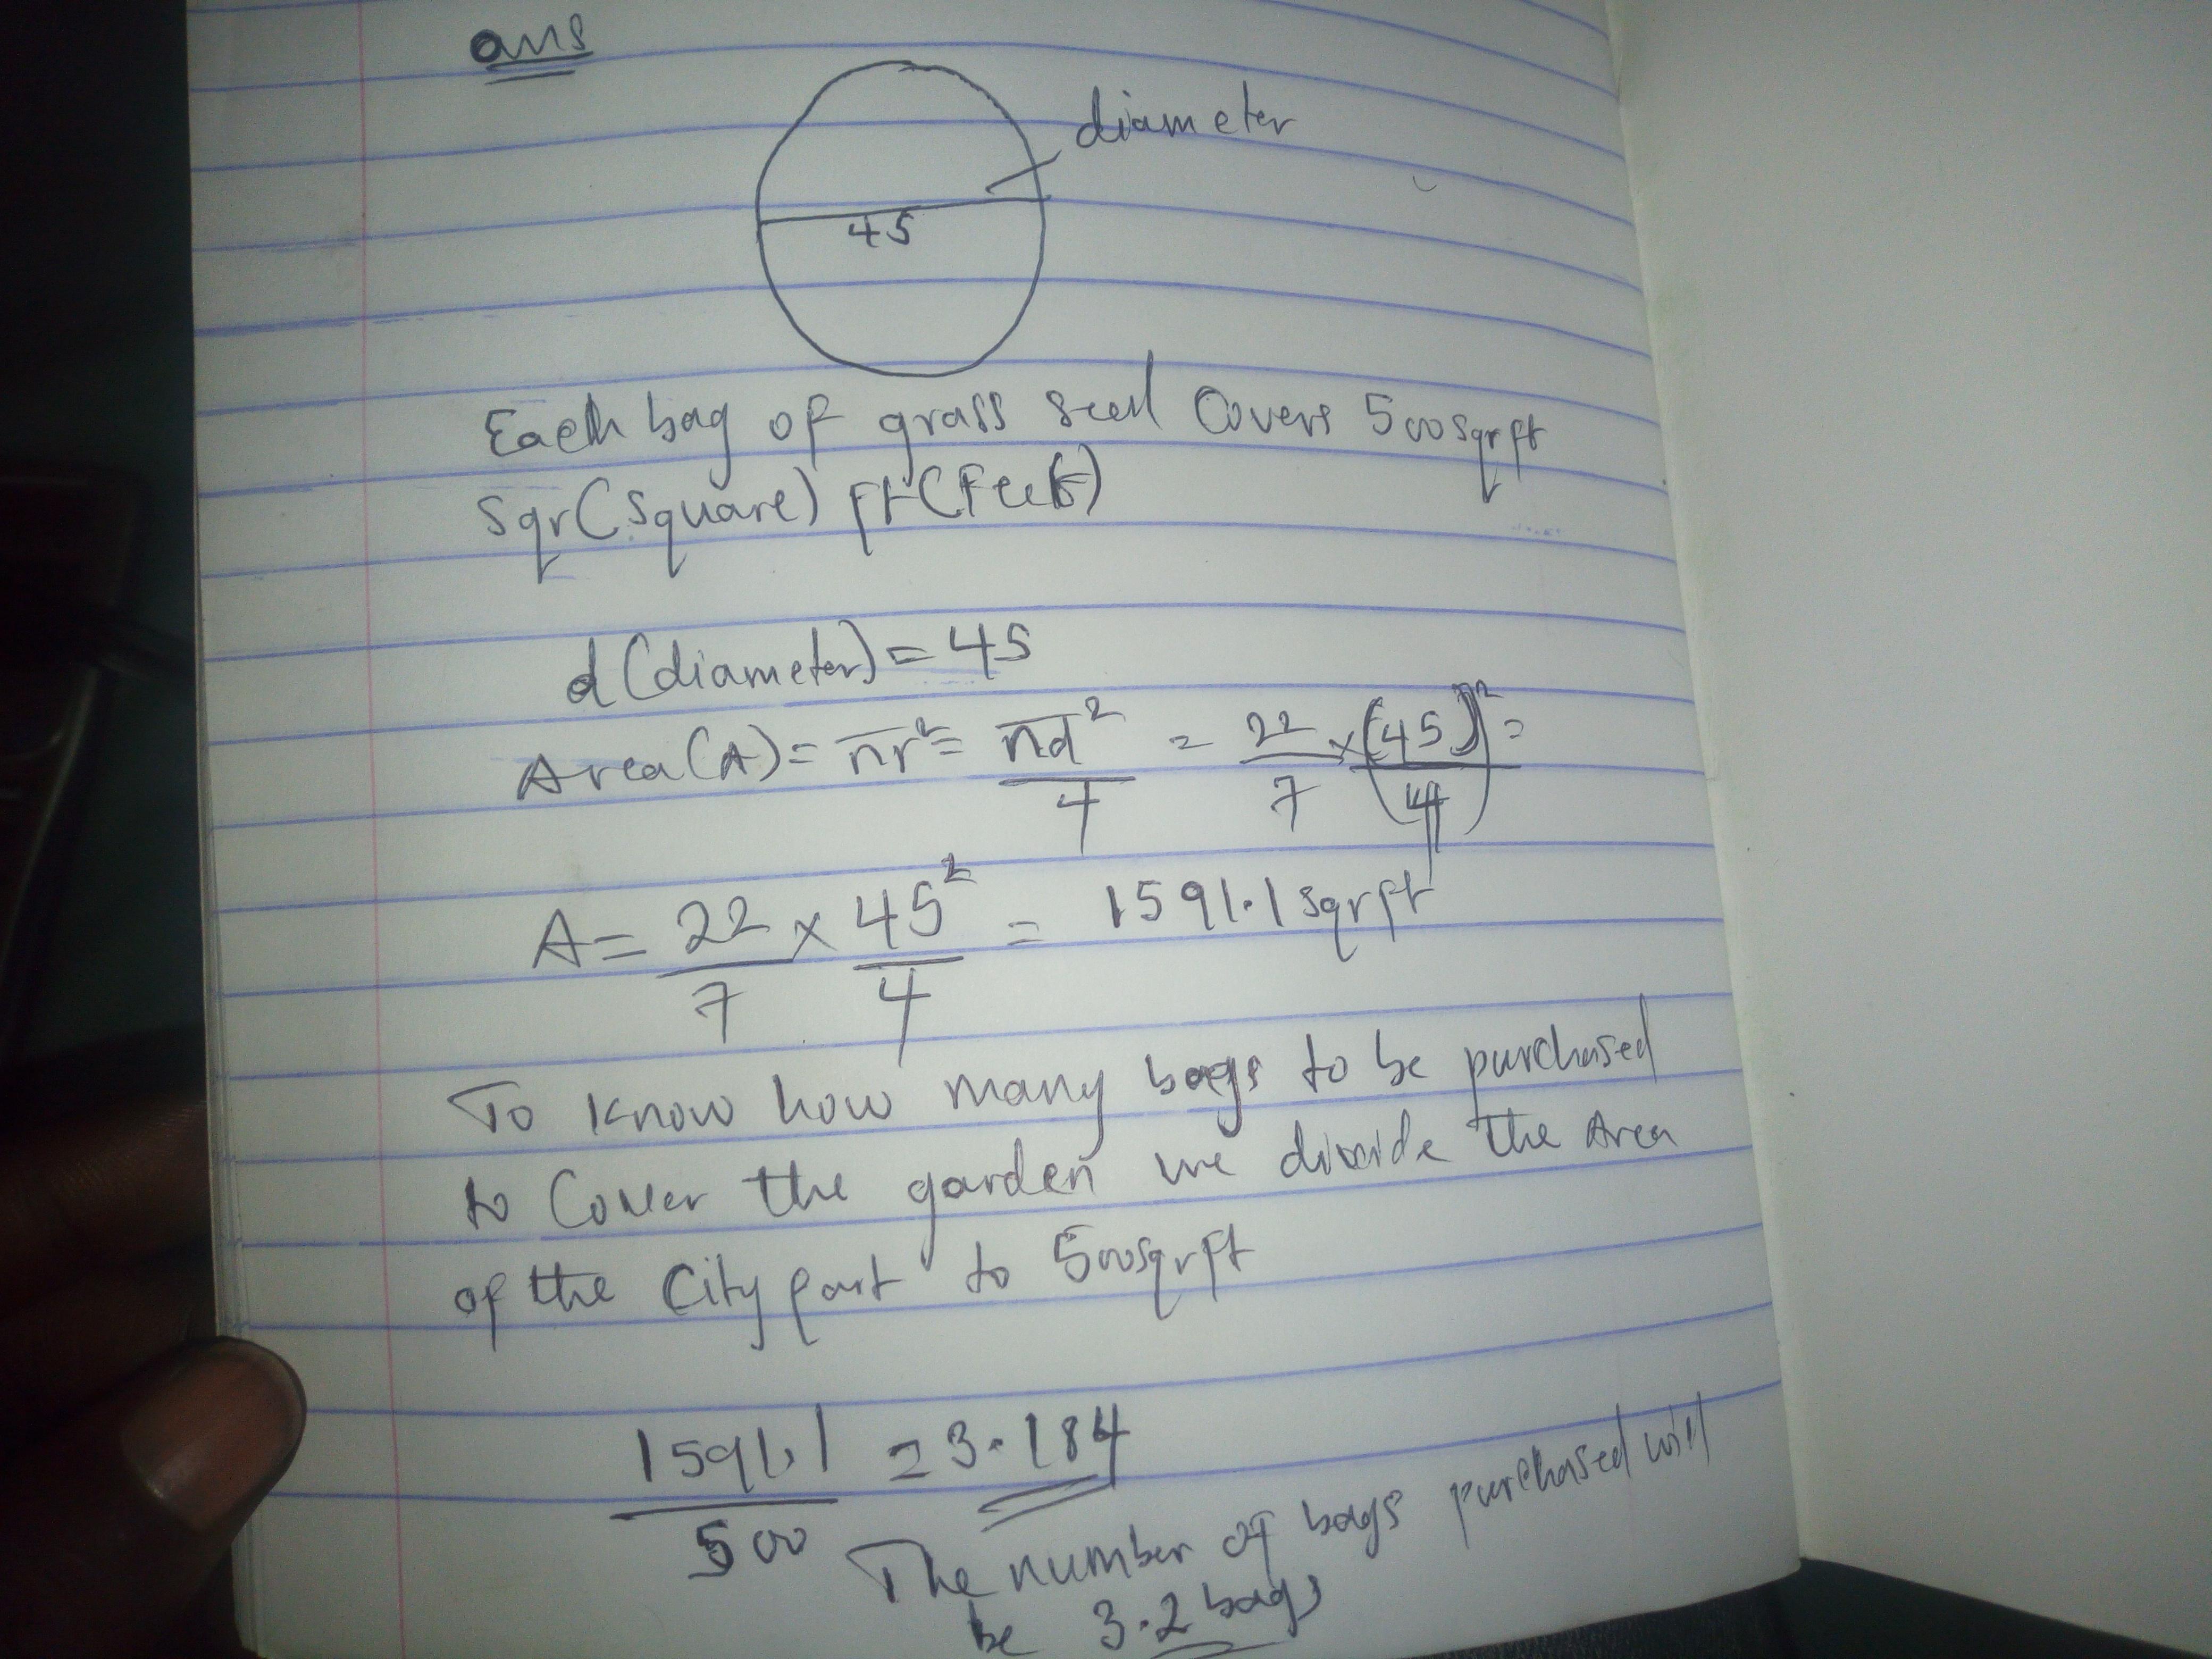 ans
diameter
45
Each bag of grass seed Covers 500sqrft
Sqr(Square) ft(Feet)
d(diameter) = 45
Area(A) = πr² = πd²/4 = 22/7 × (45)²/(4) =
A = 22/7 × 45²/4 = 1591.1 sqrft
To know how many bags to be purchased
to Cover the garden we divide the Area
of the City part to 500sqrft
1591.1/500 = 3.184
The number of bags purchased will
be 3.2 bags